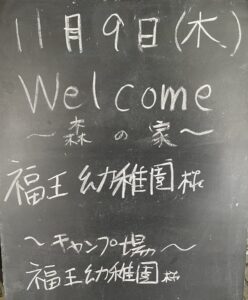 11月9日(木)
Welcome
～森の家～
福王幼稚園様
～キャンプ場～
福王幼稚園様